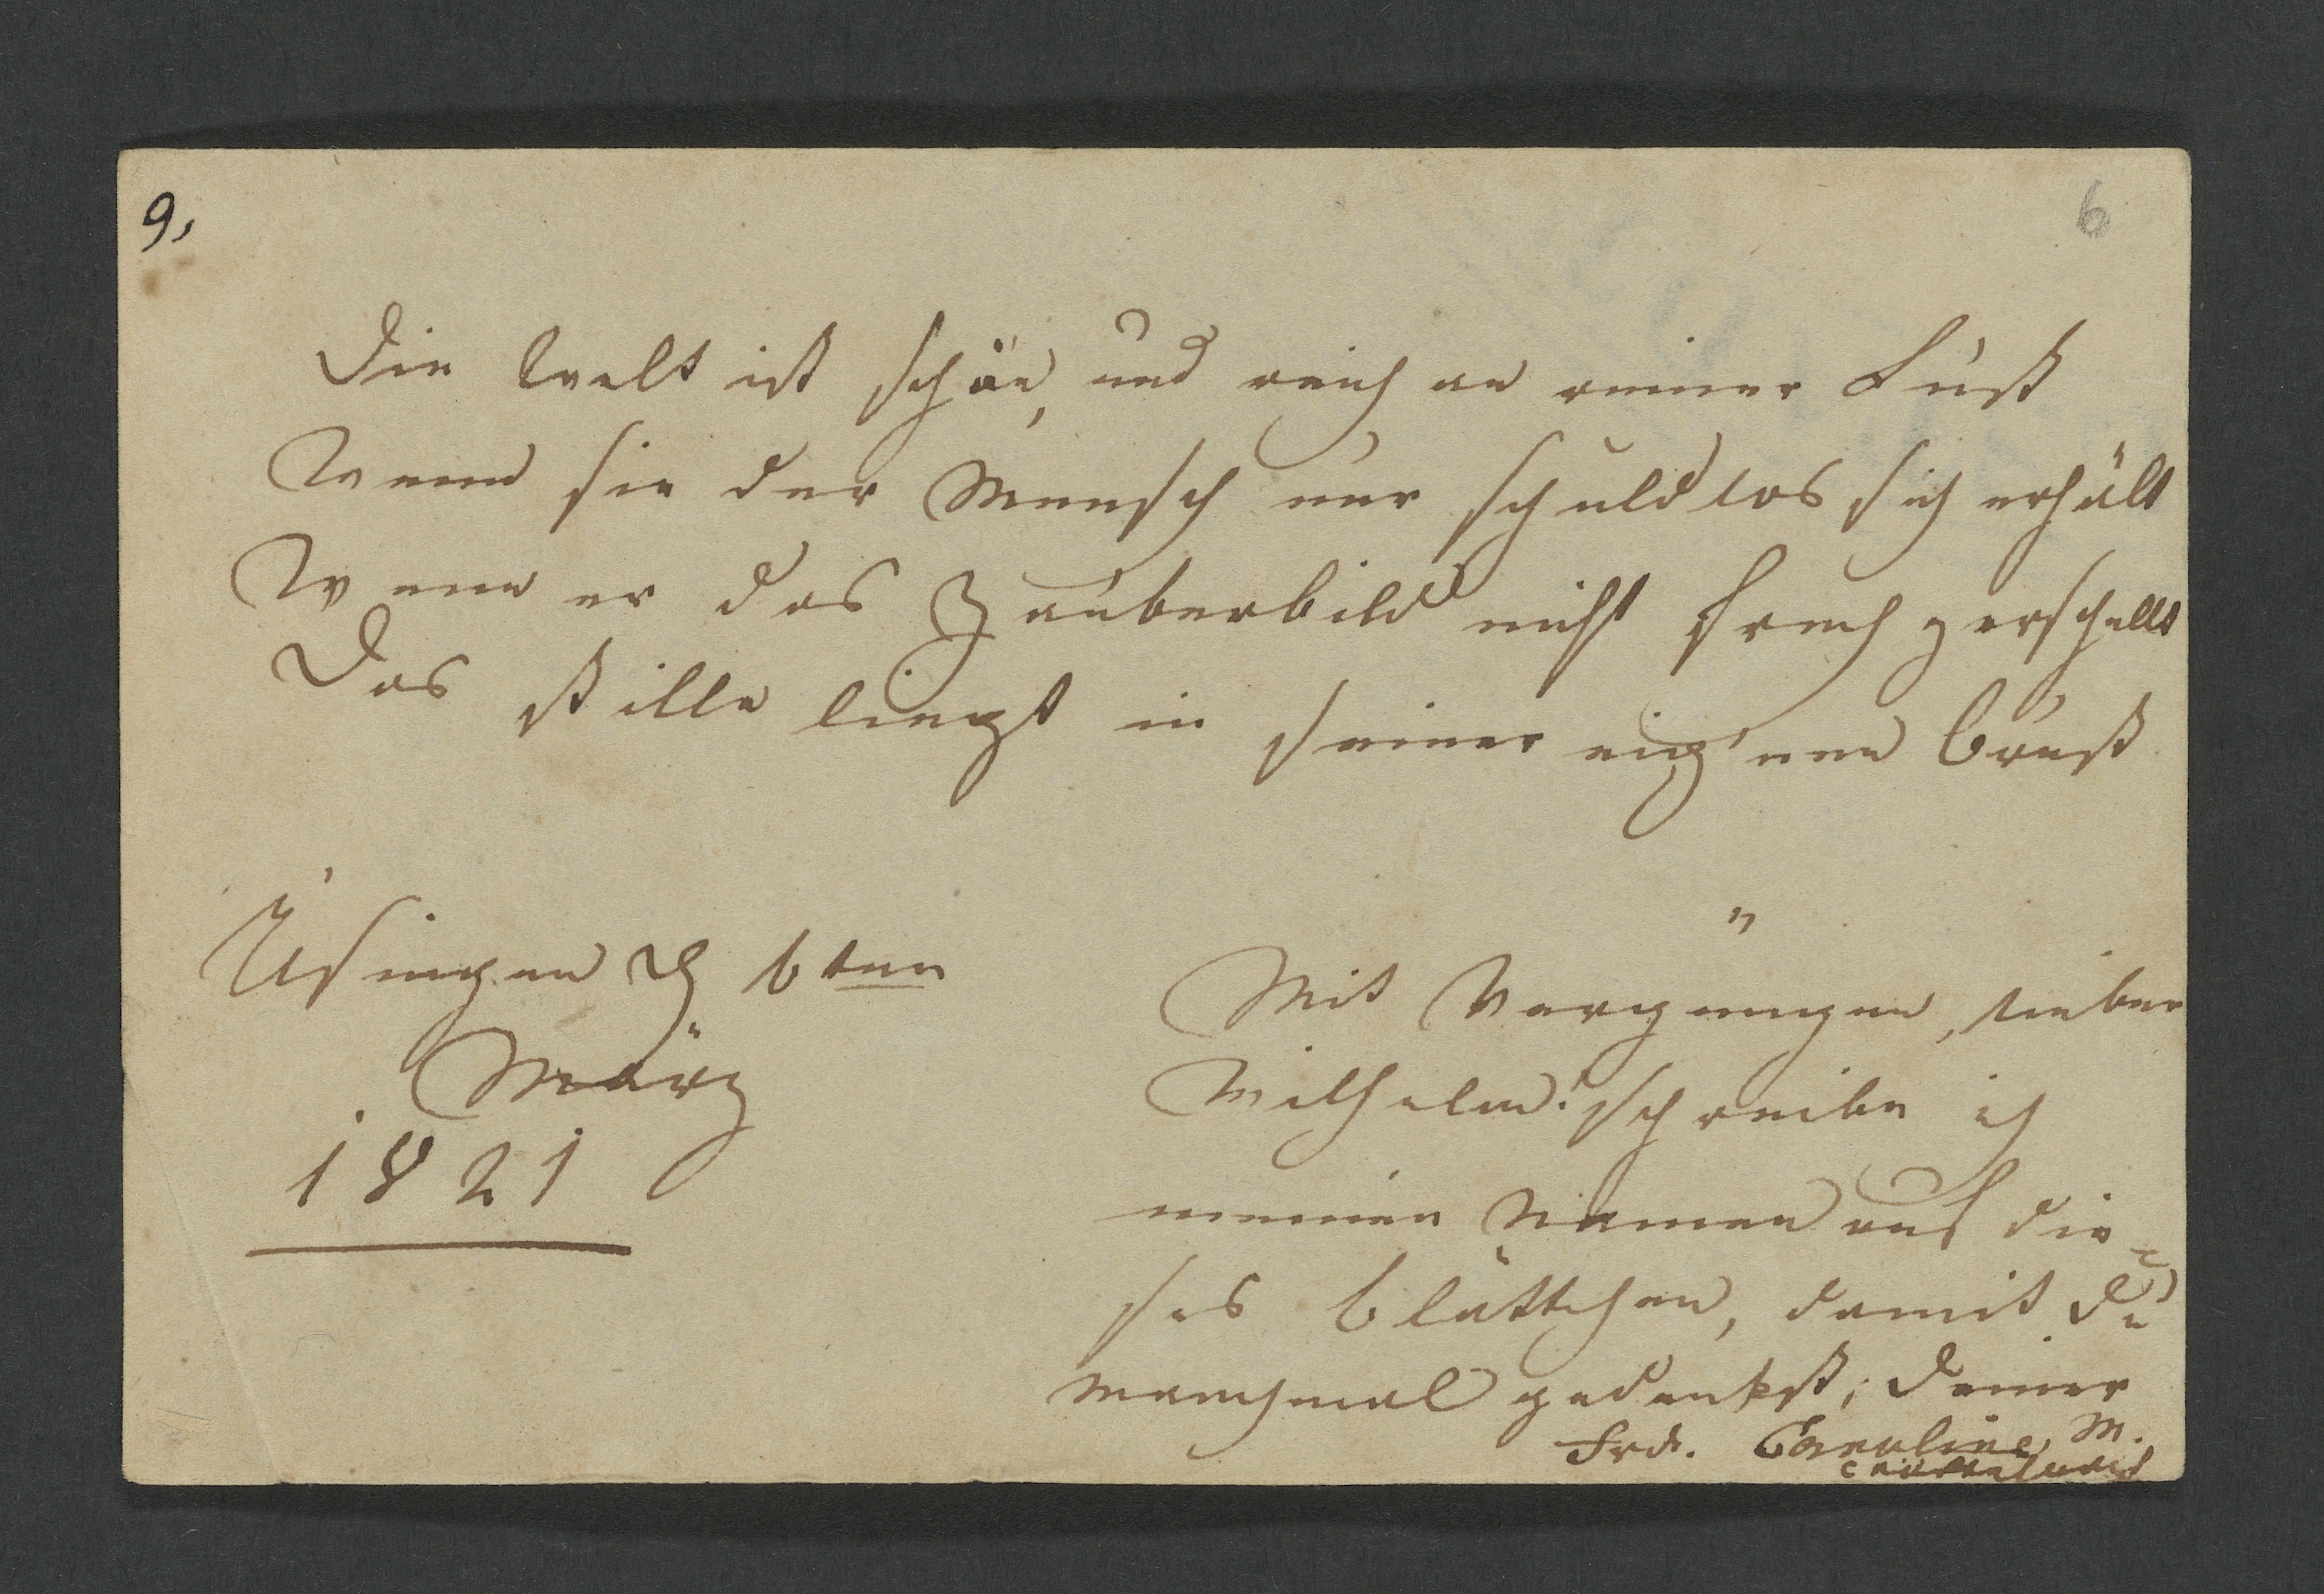 9,
6
Die Welt ist schön, und reich an reiner Lust
Wenn sie der Mensch nur schuldlos sich erhält
Wenn er das Zauberbild nicht frech zerschellt
Das stille liegt in seiner eig'nen Brust
Usingen d 6ten
März
1821
"
Mit Vergnügen, lieber
Wilhelm! schreibe ich
meinen Namen auf die=
ses Blättchen, damit du
manchmal gedenkst; deiner
Frd. Caroline M.